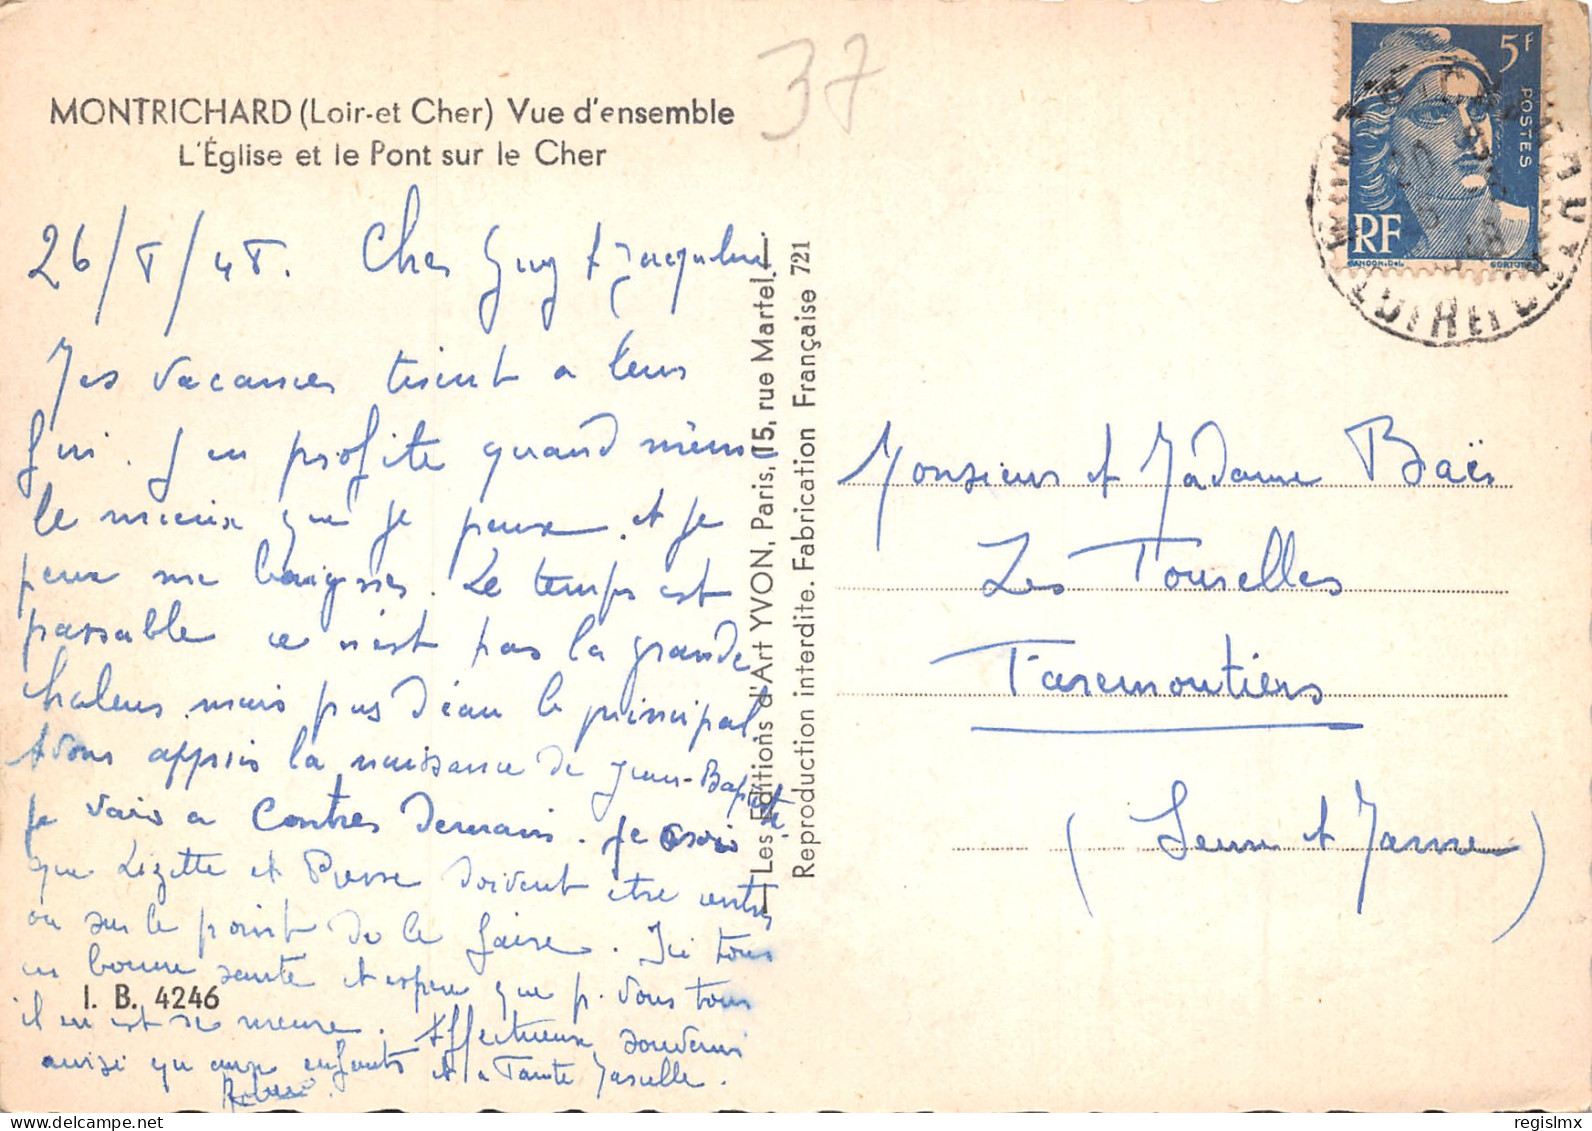 37
MONTRICHARD (Loir-et Cher) Vue d'ensemble
L'Église et le Pont sur le Cher
26/8/48. Chers Guy et Jacqueline
Mes vacances tirent a leur
fin. J'en profite quand même
le mieux que je peux. et je
peux me baigner. Le temps est
passable ce n'est pas la grande
chaleur mais pas d'eau le principal
Avons appris la naissance de Jean-Baptiste
je vais a Contres demain. Je crois
que Lizette et Pierre doivent être rentrés
ou sur le point de le faire. Ici tous
en bonne santé et espere que p. vous tous
il en est de meme. Affectueux souvenirs
ainsi qu'aux enfants et a Tante Marcelle.
I. B. 4246
Les Editions d'Art YVON, Paris, 15, rue Martel
Reproduction interdite. Fabrication Française 721
5F
POSTES
RF
GANDON-DEL.
CORTOT
MONTRICHARD
LOIR ET
Monsieur et Madame Baës
Les Tourelles
Faremoutiers
(Seine et Marne)
regislmx